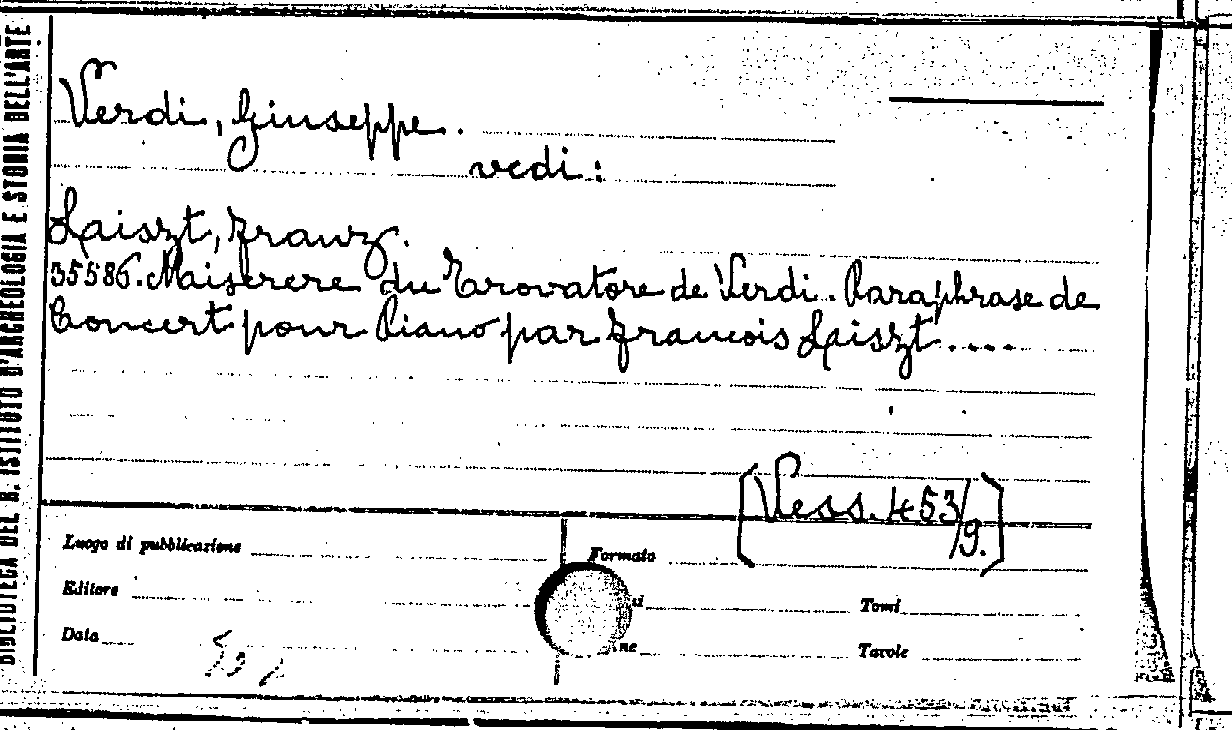 BIBLIOTECA DEL R. ISTITUTO D'ARCHEOLOGIA E STORIA DELL'ARTE
Verdi, Giuseppe.
vedi:
Laiszt, Franz.
35586. Maiserere du Trovatore de Verdi. Paraphrase de
Concert pour Piano par Francois Laiszt.....
[Vess. 453/9.]
Luogo di pubblicazione
Formato
Editore
Tomi
Data
Tavole